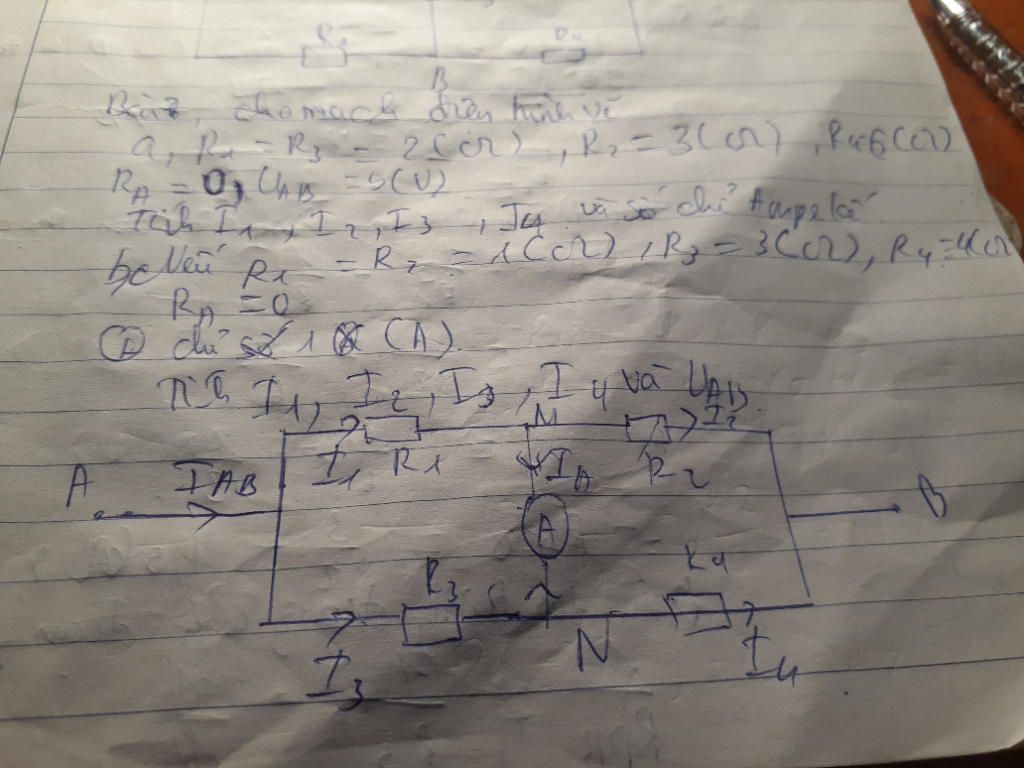 R1
R4
B
Bài2, cho mạch điện hình vẽ
a, R1 = R3 = 2(Ω), R2 = 3(Ω), R4=6(Ω)
RA = 0, UAB = 5(V)
Tính I1, I2, I3, I4 và số chỉ Ampe kế
b, Nếu R1 = R2 = 1(Ω), R3 = 3(Ω), R4=4(Ω
RA = 0
(A) chỉ số 1 (A).
Tính I1, I2, I3, I4 và UAB.
M I2
I1 R1 IA R2
A IAB B
A
R3 R4
N
I3 I4